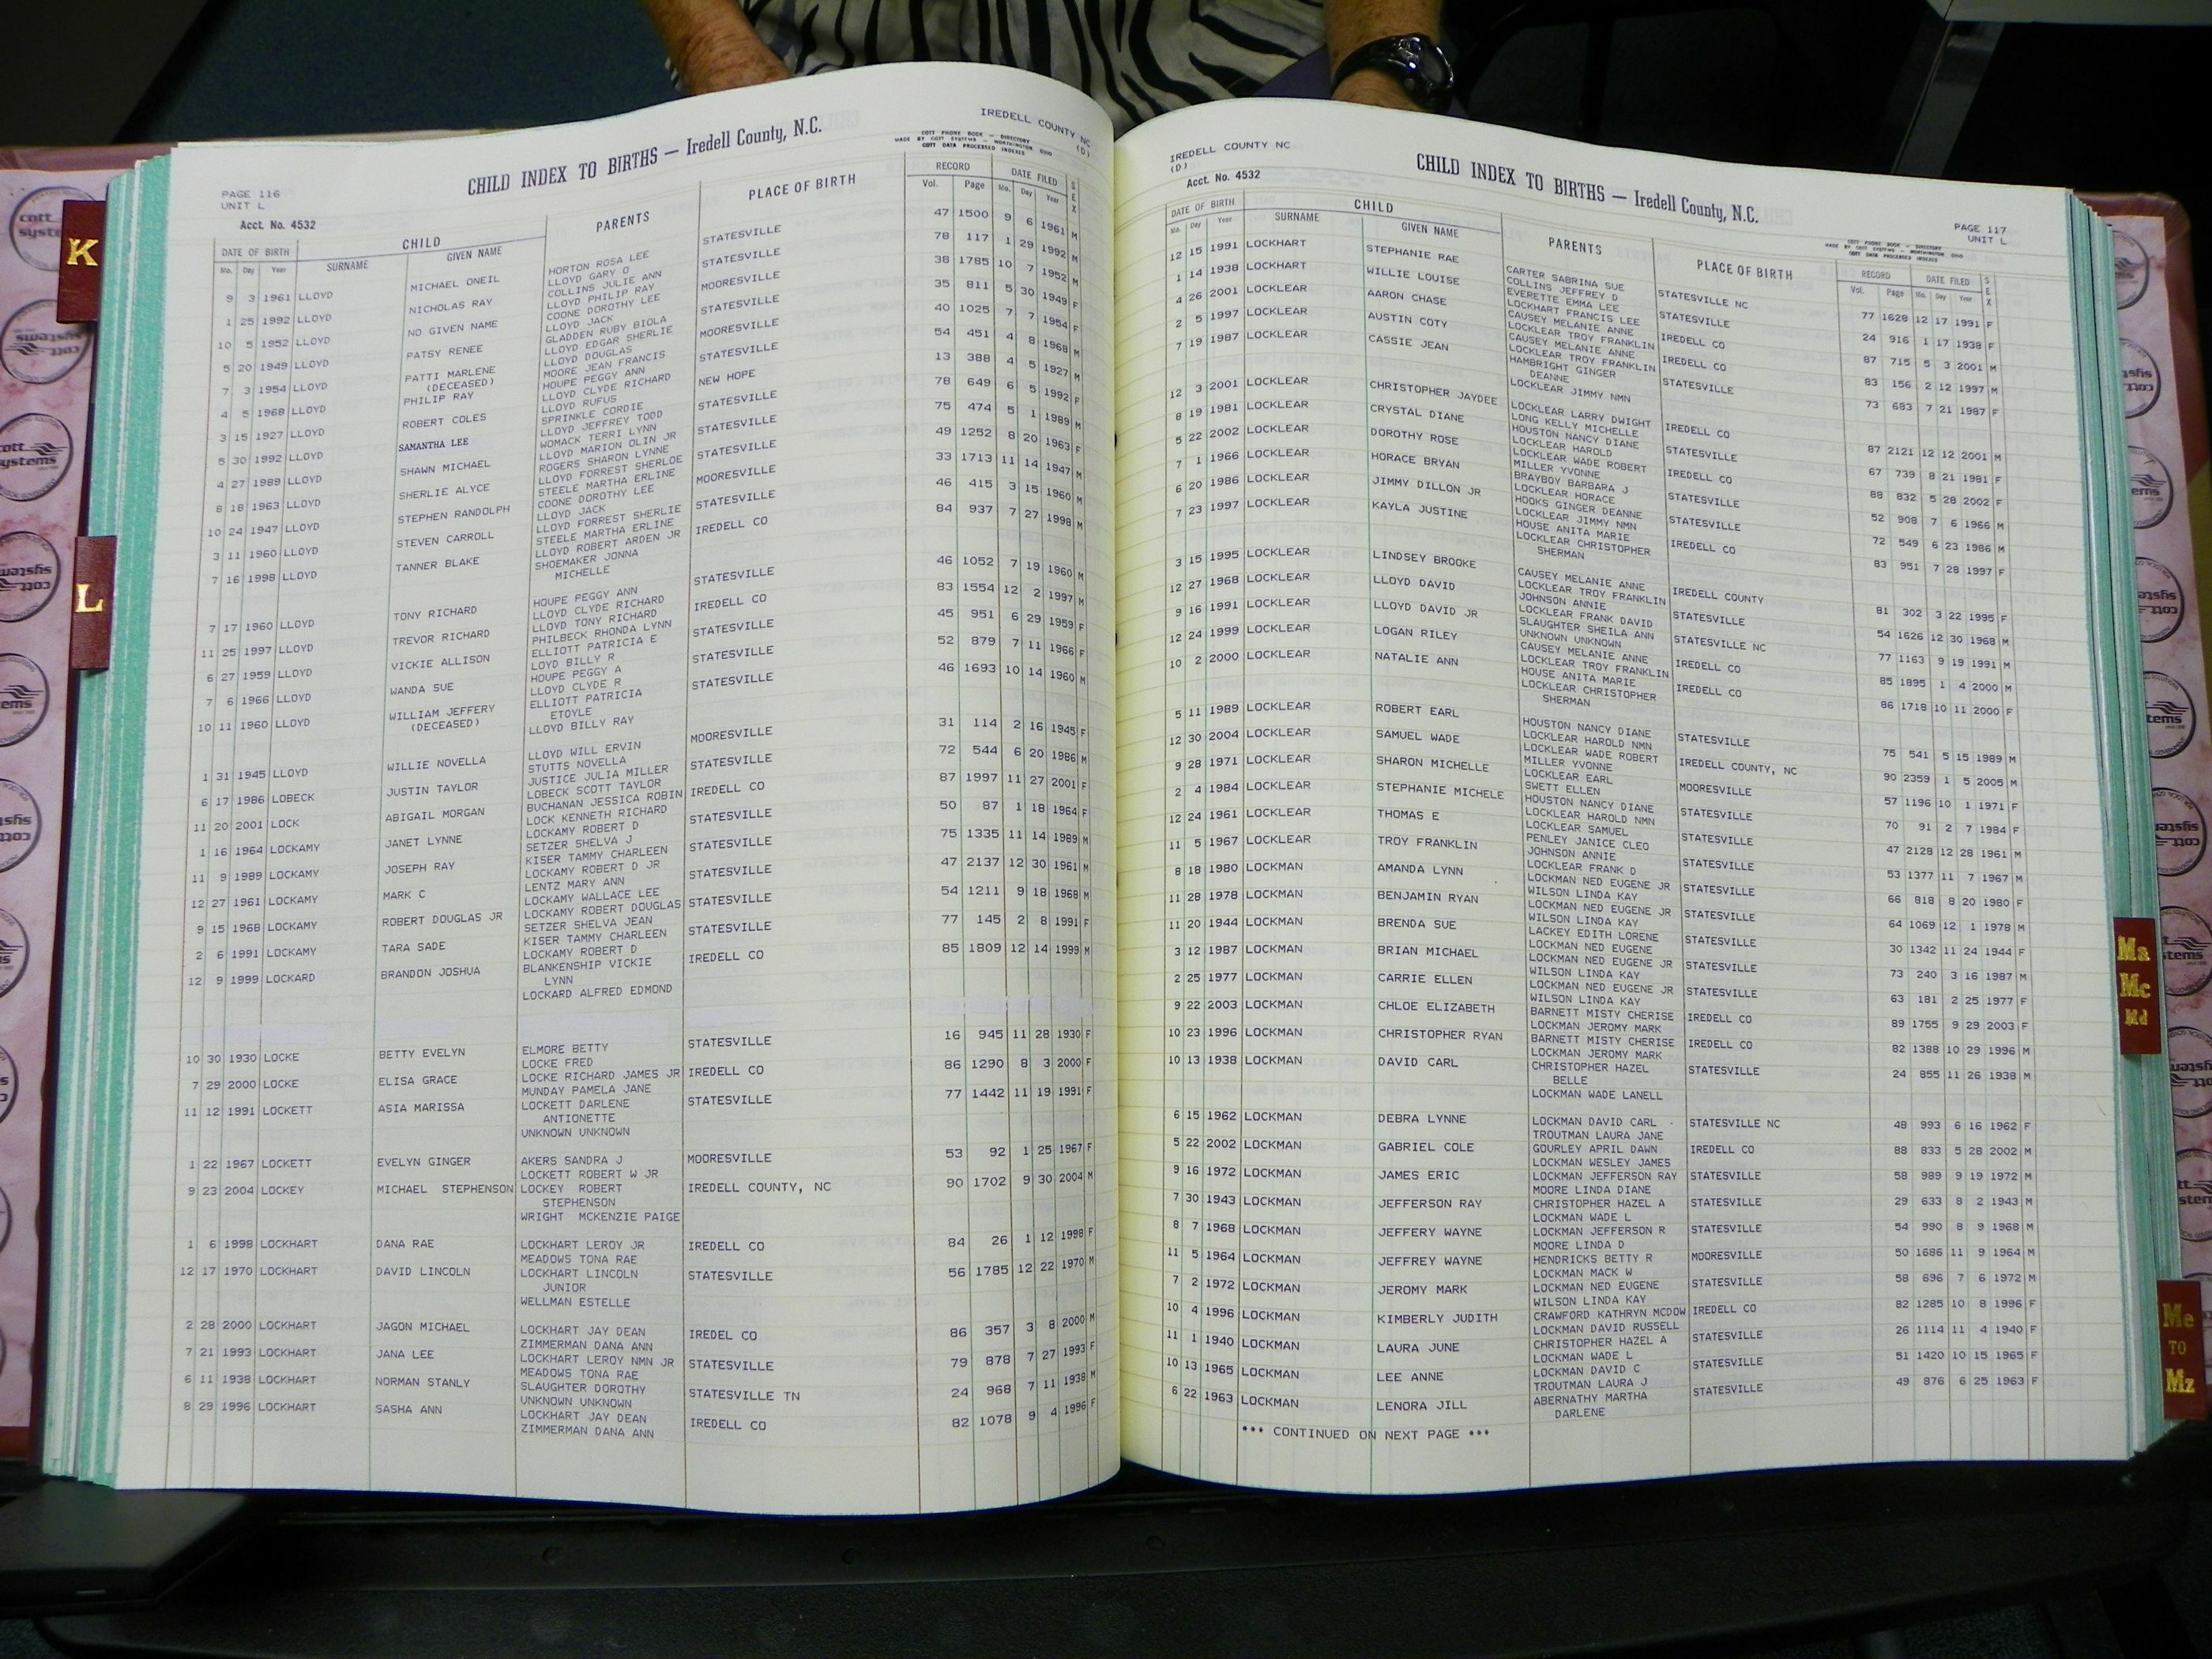 IREDELL COUNTY NC
(D)
CHILD INDEX TO BIRTHS — Iredell County, N.C.
COTT PHONE BOOK — DIRECTORY
MADE BY COTT SYSTEMS — WORTHINGTON OHIO
COTT DATA PROCESSED INDEXES
PAGE 116
UNIT L
Acct. No. 4532
DATE OF BIRTH CHILD PARENTS PLACE OF BIRTH RECORD DATE FILED SEX
Mo. Day Year SURNAME GIVEN NAME Vol. Page Mo. Day Year
9 3 1961 LLOYD MICHAEL ONEIL HORTON ROSA LEE STATESVILLE 47 1500 9 6 1961 M
LLOYD GARY O
1 25 1992 LLOYD NICHOLAS RAY COLLINS JULIE ANN STATESVILLE 78 117 1 29 1992 M
LLOYD PHILIP RAY
10 5 1952 LLOYD NO GIVEN NAME COONE DOROTHY LEE MOORESVILLE 38 1785 10 7 1952 M
LLOYD JACK
5 20 1949 LLOYD PATSY RENEE GLADDEN RUBY BIOLA STATESVILLE 35 811 5 30 1949 F
LLOYD EDGAR SHERLIE
7 3 1954 LLOYD PATTI MARLENE LLOYD DOUGLAS MOORESVILLE 40 1025 7 7 1954 F
(DECEASED) MOORE JEAN FRANCIS
4 5 1968 LLOYD PHILIP RAY HOUPE PEGGY ANN STATESVILLE 54 451 4 8 1968 M
LLOYD CLYDE RICHARD
3 15 1927 LLOYD ROBERT COLES LLOYD RUFUS NEW HOPE 13 388 4 5 1927 M
SPRINKLE CORDIE
5 30 1992 LLOYD SAMANTHA LEE LLOYD JEFFREY TODD STATESVILLE 78 649 6 5 1992 F
WOMACK TERRI LYNN
4 27 1989 LLOYD SHAWN MICHAEL LLOYD MARION OLIN JR STATESVILLE 75 474 5 1 1989 M
ROGERS SHARON LYNNE
8 18 1963 LLOYD SHERLIE ALYCE LLOYD FORREST SHERLOE STATESVILLE 49 1252 8 20 1963 F
STEELE MARTHA ERLINE
10 24 1947 LLOYD STEPHEN RANDOLPH COONE DOROTHY LEE MOORESVILLE 33 1713 11 14 1947 M
LLOYD JACK
3 11 1960 LLOYD STEVEN CARROLL LLOYD FORREST SHERLIE STATESVILLE 46 415 3 15 1960 M
STEELE MARTHA ERLINE
7 16 1998 LLOYD TANNER BLAKE LLOYD ROBERT ARDEN JR IREDELL CO 84 937 7 27 1998 M
SHOEMAKER JONNA
MICHELLE
7 17 1960 LLOYD TONY RICHARD HOUPE PEGGY ANN STATESVILLE 46 1052 7 19 1960 M
LLOYD CLYDE RICHARD
11 25 1997 LLOYD TREVOR RICHARD LLOYD TONY RICHARD IREDELL CO 83 1554 12 2 1997 M
PHILBECK RHONDA LYNN
6 27 1959 LLOYD VICKIE ALLISON ELLIOTT PATRICIA E STATESVILLE 45 951 6 29 1959 F
LOYD BILLY R
7 6 1966 LLOYD WANDA SUE HOUPE PEGGY A STATESVILLE 52 879 7 11 1966 F
LLOYD CLYDE R
10 11 1960 LLOYD WILLIAM JEFFERY ELLIOTT PATRICIA STATESVILLE 46 1693 10 14 1960 M
(DECEASED) ETOYLE
LLOYD BILLY RAY
1 31 1945 LLOYD WILLIE NOVELLA LLOYD WILL ERVIN MOORESVILLE 31 114 2 16 1945 F
STUTTS NOVELLA
6 17 1986 LOBECK JUSTIN TAYLOR JUSTICE JULIA MILLER STATESVILLE 72 544 6 20 1986 M
LOBECK SCOTT TAYLOR
11 20 2001 LOCK ABIGAIL MORGAN BUCHANAN JESSICA ROBIN IREDELL CO 87 1997 11 27 2001 F
LOCK KENNETH RICHARD
1 16 1964 LOCKAMY JANET LYNNE LOCKAMY ROBERT D STATESVILLE 50 87 1 18 1964 F
SETZER SHELVA J
11 9 1989 LOCKAMY JOSEPH RAY KISER TAMMY CHARLEEN STATESVILLE 75 1335 11 14 1989 M
LOCKAMY ROBERT D JR
12 27 1961 LOCKAMY MARK C LENTZ MARY ANN STATESVILLE 47 2137 12 30 1961 M
LOCKAMY WALLACE LEE
9 15 1968 LOCKAMY ROBERT DOUGLAS JR LOCKAMY ROBERT DOUGLAS STATESVILLE 54 1211 9 18 1968 M
SETZER SHELVA JEAN
2 6 1991 LOCKAMY TARA SADE KISER TAMMY CHARLEEN STATESVILLE 77 145 2 8 1991 F
LOCKAMY ROBERT D
12 9 1999 LOCKARD BRANDON JOSHUA BLANKENSHIP VICKIE IREDELL CO 85 1809 12 14 1999 M
LYNN
LOCKARD ALFRED EDMOND
10 30 1930 LOCKE BETTY EVELYN ELMORE BETTY STATESVILLE 16 945 11 28 1930 F
LOCKE FRED
7 29 2000 LOCKE ELISA GRACE LOCKE RICHARD JAMES JR IREDELL CO 86 1290 8 3 2000 F
MUNDAY PAMELA JANE
11 12 1991 LOCKETT ASIA MARISSA LOCKETT DARLENE STATESVILLE 77 1442 11 19 1991 F
ANTIONETTE
UNKNOWN UNKNOWN
1 22 1967 LOCKETT EVELYN GINGER AKERS SANDRA J MOORESVILLE 53 92 1 25 1967 F
LOCKETT ROBERT W JR
9 23 2004 LOCKEY MICHAEL STEPHENSON LOCKEY ROBERT IREDELL COUNTY, NC 90 1702 9 30 2004 M
STEPHENSON
WRIGHT MCKENZIE PAIGE
1 6 1998 LOCKHART DANA RAE LOCKHART LEROY JR IREDELL CO 84 26 1 12 1998 F
MEADOWS TONA RAE
12 17 1970 LOCKHART DAVID LINCOLN LOCKHART LINCOLN STATESVILLE 56 1785 12 22 1970 M
JUNIOR
WELLMAN ESTELLE
2 28 2000 LOCKHART JAGON MICHAEL LOCKHART JAY DEAN IREDEL CO 86 357 3 8 2000 M
ZIMMERMAN DANA ANN
7 21 1993 LOCKHART JANA LEE LOCKHART LEROY NMN JR STATESVILLE 79 878 7 27 1993 F
MEADOWS TONA RAE
6 11 1938 LOCKHART NORMAN STANLY SLAUGHTER DOROTHY STATESVILLE TN 24 968 7 11 1938 M
UNKNOWN UNKNOWN
8 29 1996 LOCKHART SASHA ANN LOCKHART JAY DEAN IREDELL CO 82 1078 9 4 1996 F
ZIMMERMAN DANA ANN
IREDELL COUNTY NC
(D)
Acct. No. 4532
CHILD INDEX TO BIRTHS — Iredell County, N.C.
PAGE 117
UNIT L
COTT PHONE BOOK — DIRECTORY
MADE BY COTT SYSTEMS — WORTHINGTON OHIO
COTT DATA PROCESSED INDEXES
DATE OF BIRTH CHILD PARENTS PLACE OF BIRTH RECORD DATE FILED SEX
Mo. Day Year SURNAME GIVEN NAME Vol. Page Mo. Day Year
12 15 1991 LOCKHART STEPHANIE RAE CARTER SABRINA SUE STATESVILLE NC 77 1628 12 17 1991 F
COLLINS JEFFREY D
1 14 1938 LOCKHART WILLIE LOUISE EVERETTE EMMA LEE STATESVILLE 24 916 1 17 1938 F
LOCKHART FRANCIS LEE
4 26 2001 LOCKLEAR AARON CHASE CAUSEY MELANIE ANNE IREDELL CO 87 715 5 3 2001 M
LOCKLEAR TROY FRANKLIN
2 5 1997 LOCKLEAR AUSTIN COTY CAUSEY MELANIE ANNE IREDELL CO 83 156 2 12 1997 M
LOCKLEAR TROY FRANKLIN
7 19 1987 LOCKLEAR CASSIE JEAN HAMBRIGHT GINGER STATESVILLE 73 683 7 21 1987 F
DEANNE
LOCKLEAR JIMMY NMN
12 3 2001 LOCKLEAR CHRISTOPHER JAYDEE LOCKLEAR LARRY DWIGHT IREDELL CO 87 2121 12 12 2001 M
LONG KELLY MICHELLE
8 19 1981 LOCKLEAR CRYSTAL DIANE HOUSTON NANCY DIANE STATESVILLE 67 739 8 21 1981 F
LOCKLEAR HAROLD
5 22 2002 LOCKLEAR DOROTHY ROSE LOCKLEAR WADE ROBERT IREDELL CO 88 832 5 28 2002 F
MILLER YVONNE
7 1 1966 LOCKLEAR HORACE BRYAN BRAYBOY BARBARA J STATESVILLE 52 908 7 6 1966 M
LOCKLEAR HORACE
6 20 1986 LOCKLEAR JIMMY DILLON JR HOOKS GINGER DEANNE STATESVILLE 72 549 6 23 1986 M
LOCKLEAR JIMMY NMN
7 23 1997 LOCKLEAR KAYLA JUSTINE HOUSE ANITA MARIE IREDELL CO 83 951 7 28 1997 F
LOCKLEAR CHRISTOPHER
SHERMAN
3 15 1995 LOCKLEAR LINDSEY BROOKE CAUSEY MELANIE ANNE IREDELL COUNTY 81 302 3 22 1995 F
LOCKLEAR TROY FRANKLIN
12 27 1968 LOCKLEAR LLOYD DAVID JOHNSON ANNIE STATESVILLE 54 1626 12 30 1968 M
LOCKLEAR FRANK DAVID
9 16 1991 LOCKLEAR LLOYD DAVID JR SLAUGHTER SHEILA ANN STATESVILLE NC 77 1163 9 19 1991 M
UNKNOWN UNKNOWN
12 24 1999 LOCKLEAR LOGAN RILEY CAUSEY MELANIE ANNE IREDELL CO 85 1895 1 4 2000 M
LOCKLEAR TROY FRANKLIN
10 2 2000 LOCKLEAR NATALIE ANN HOUSE ANITA MARIE IREDELL CO 86 1718 10 11 2000 F
LOCKLEAR CHRISTOPHER
SHERMAN
5 11 1989 LOCKLEAR ROBERT EARL HOUSTON NANCY DIANE STATESVILLE 75 541 5 15 1989 M
LOCKLEAR HAROLD NMN
12 30 2004 LOCKLEAR SAMUEL WADE LOCKLEAR WADE ROBERT IREDELL COUNTY, NC 90 2359 1 5 2005 M
MILLER YVONNE
9 28 1971 LOCKLEAR SHARON MICHELLE LOCKLEAR EARL MOORESVILLE 57 1196 10 1 1971 F
SWETT ELLEN
2 4 1984 LOCKLEAR STEPHANIE MICHELE HOUSTON NANCY DIANE STATESVILLE 70 91 2 7 1984 F
LOCKLEAR HAROLD NMN
12 24 1961 LOCKLEAR THOMAS E LOCKLEAR SAMUEL STATESVILLE 47 2128 12 28 1961 M
PENLEY JANICE CLEO
11 5 1967 LOCKLEAR TROY FRANKLIN JOHNSON ANNIE STATESVILLE 53 1377 11 7 1967 M
LOCKLEAR FRANK D
8 18 1980 LOCKMAN AMANDA LYNN LOCKMAN NED EUGENE JR STATESVILLE 66 818 8 20 1980 F
WILSON LINDA KAY
11 28 1978 LOCKMAN BENJAMIN RYAN LOCKMAN NED EUGENE JR STATESVILLE 64 1069 12 1 1978 M
WILSON LINDA KAY
11 20 1944 LOCKMAN BRENDA SUE LACKEY EDITH LORENE STATESVILLE 30 1342 11 24 1944 F
LOCKMAN NED EUGENE
3 12 1987 LOCKMAN BRIAN MICHAEL LOCKMAN NED EUGENE JR STATESVILLE 73 240 3 16 1987 M
WILSON LINDA KAY
2 25 1977 LOCKMAN CARRIE ELLEN LOCKMAN NED EUGENE JR STATESVILLE 63 181 2 25 1977 F
WILSON LINDA KAY
9 22 2003 LOCKMAN CHLOE ELIZABETH BARNETT MISTY CHERISE IREDELL CO 89 1755 9 29 2003 F
LOCKMAN JEROMY MARK
10 23 1996 LOCKMAN CHRISTOPHER RYAN BARNETT MISTY CHERISE IREDELL CO 82 1388 10 29 1996 M
LOCKMAN JEROMY MARK
10 13 1938 LOCKMAN DAVID CARL CHRISTOPHER HAZEL STATESVILLE 24 855 11 26 1938 M
BELLE
LOCKMAN WADE LANELL
6 15 1962 LOCKMAN DEBRA LYNNE LOCKMAN DAVID CARL STATESVILLE NC 48 993 6 16 1962 F
TROUTMAN LAURA JANE
5 22 2002 LOCKMAN GABRIEL COLE GOURLEY APRIL DAWN IREDELL CO 88 833 5 28 2002 M
LOCKMAN WESLEY JAMES
9 16 1972 LOCKMAN JAMES ERIC LOCKMAN JEFFERSON RAY STATESVILLE 58 989 9 19 1972 M
MOORE LINDA DIANE
7 30 1943 LOCKMAN JEFFERSON RAY CHRISTOPHER HAZEL A STATESVILLE 29 633 8 2 1943 M
LOCKMAN WADE L
8 7 1968 LOCKMAN JEFFERY WAYNE LOCKMAN JEFFERSON R STATESVILLE 54 990 8 9 1968 M
MOORE LINDA D
11 5 1964 LOCKMAN JEFFREY WAYNE HENDRICKS BETTY R MOORESVILLE 50 1686 11 9 1964 M
LOCKMAN MACK W
7 2 1972 LOCKMAN JEROMY MARK LOCKMAN NED EUGENE STATESVILLE 58 696 7 6 1972 M
WILSON LINDA KAY
10 4 1996 LOCKMAN KIMBERLY JUDITH CRAWFORD KATHRYN MCDOW IREDELL CO 82 1285 10 8 1996 F
LOCKMAN DAVID RUSSELL
11 1 1940 LOCKMAN LAURA JUNE CHRISTOPHER HAZEL A STATESVILLE 26 1114 11 4 1940 F
LOCKMAN WADE L
10 13 1965 LOCKMAN LEE ANNE LOCKMAN DAVID C STATESVILLE 51 1420 10 15 1965 F
TROUTMAN LAURA J
6 22 1963 LOCKMAN LENORA JILL ABERNATHY MARTHA STATESVILLE 49 876 6 25 1963 F
DARLENE
*** CONTINUED ON NEXT PAGE ***
K
L
Ma
Mc
Md
Me
TO
Mz
cott systems